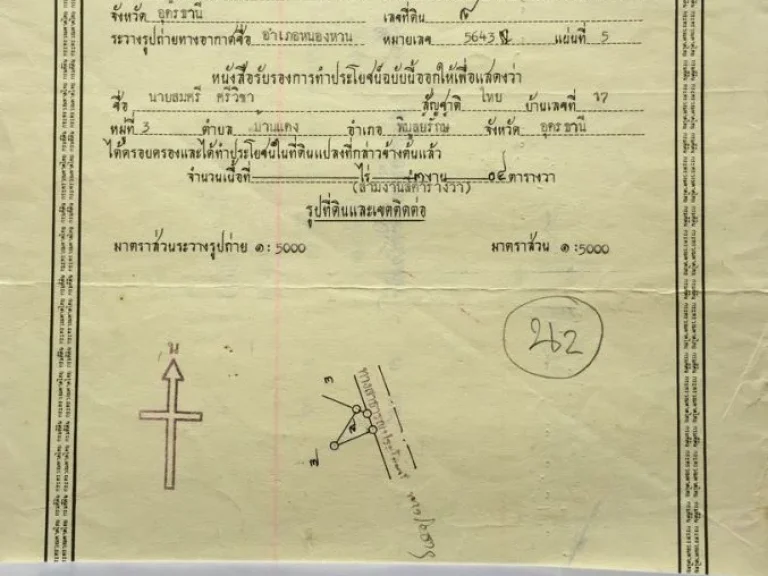 จังหวัด อุดรธานี เลขที่ดิน
ระวางรูปถ่ายทางอากาศชื่อ อำเภอหนองหาน หมายเลข 5643 แผ่นที่ 5
หนังสือรับรองการทำประโยชน์ฉบับนี้ออกให้เพื่อแสดงว่า
ชื่อ นายสมศรี ศรีวิชา สัญชาติ ไทย บ้านเลขที่ 17
หมู่ที่ 3 ตำบล บ้านแดง อำเภอ พิบูลย์รักษ์ จังหวัด อุดรธานี
ได้ครอบครองและได้ทำประโยชน์ในที่ดินแปลงที่กล่าวข้างต้นแล้ว
จำนวนเนื้อที่ ไร่ ๓ งาน ๐๔ ตารางวา
(สามงานสี่ตารางวา)
รูปที่ดินและเขตติดต่อ
มาตราส่วนระวางรูปถ่าย ๑ : 5000 มาตราส่วน ๑ : 5000
น
262
3
ทางสาธารณประโยชน์